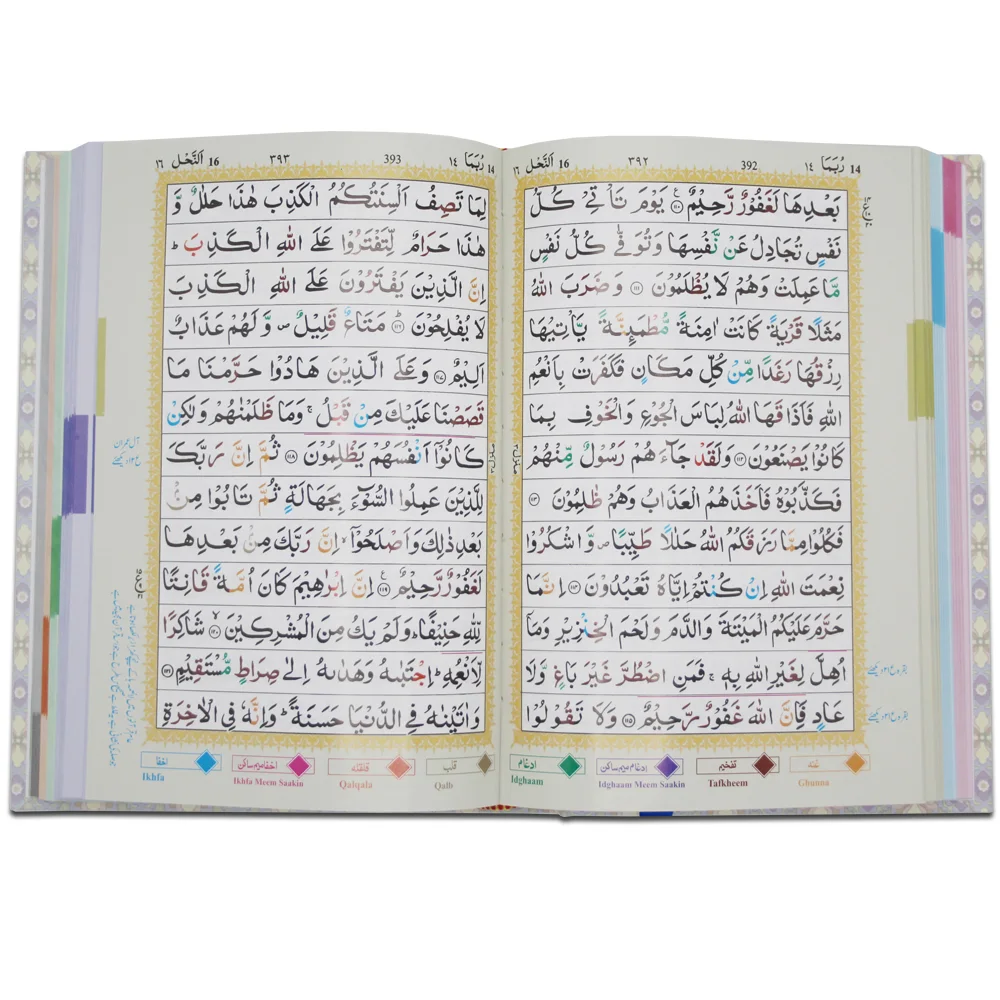 14 رُبَمَا ١٤ 392 ٣٩٢ 16 اَلنَّحْل ١٦
بَعْدِهَا لَغَفُوْرٌ رَّحِيْمٌ ۝١١٠ يَوْمَ تَاْتِيْ كُلُّ
نَفْسٍ تُجَادِلُ عَنْ نَّفْسِهَا وَتُوَفّٰى كُلُّ نَفْسٍ
مَّا عَمِلَتْ وَهُمْ لَا يُظْلَمُوْنَ ۝١١١ وَضَرَبَ اللّٰهُ
مَثَلًا قَرْيَةً كَانَتْ اٰمِنَةً مُّطْمَىِٕنَّةً يَّاْتِيْهَا
رِزْقُهَا رَغَدًا مِّنْ كُلِّ مَكَانٍ فَكَفَرَتْ بِاَنْعُمِ
اللّٰهِ فَاَذَاقَهَا اللّٰهُ لِبَاسَ الْجُوْعِ وَالْخَوْفِ بِمَا
كَانُوْا يَصْنَعُوْنَ ۝١١٢ وَلَقَدْ جَآءَهُمْ رَسُوْلٌ مِّنْهُمْ
فَكَذَّبُوْهُ فَاَخَذَهُمُ الْعَذَابُ وَهُمْ ظٰلِمُوْنَ ۝١١٣
فَكُلُوْا مِمَّا رَزَقَكُمُ اللّٰهُ حَلٰلًا طَيِّبًا ۪ وَّاشْكُرُوْا
نِعْمَتَ اللّٰهِ اِنْ كُنْتُمْ اِيَّاهُ تَعْبُدُوْنَ ۝١١٤ اِنَّمَا
حَرَّمَ عَلَيْكُمُ الْمَيْتَةَ وَالدَّمَ وَلَحْمَ الْخِنْزِيْرِ وَمَآ
اُهِلَّ لِغَيْرِ اللّٰهِ بِهٖ ۚ فَمَنِ اضْطُرَّ غَيْرَ بَاغٍ وَّلَا
عَادٍ فَاِنَّ اللّٰهَ غَفُوْرٌ رَّحِيْمٌ ۝١١٥ وَلَا تَقُوْلُوْا
غنه Ghunna
تفخیم Tafkheem
ادغام میم ساکن Idghaam Meem Saakin
ادغام Idghaam
14 رُبَمَا ١٤ 393 ٣٩٣ 16 اَلنَّحْل ١٦
لِمَا تَصِفُ اَلْسِنَتُكُمُ الْكَذِبَ هٰذَا حَلٰلٌ وَّ
هٰذَا حَرَامٌ لِّتَفْتَرُوْا عَلَى اللّٰهِ الْكَذِبَ ؕ
اِنَّ الَّذِيْنَ يَفْتَرُوْنَ عَلَى اللّٰهِ الْكَذِبَ
لَا يُفْلِحُوْنَ ؕ ۝١١٦ مَتَاعٌ قَلِيْلٌ ۪ وَّلَهُمْ عَذَابٌ
اَلِيْمٌ ۝١١٧ وَعَلَى الَّذِيْنَ هَادُوْا حَرَّمْنَا مَا
قَصَصْنَا عَلَيْكَ مِنْ قَبْلُ ۚ وَمَا ظَلَمْنٰهُمْ وَلٰكِنْ
كَانُوْٓا اَنْفُسَهُمْ يَظْلِمُوْنَ ۝١١٨ ثُمَّ اِنَّ رَبَّكَ
لِلَّذِيْنَ عَمِلُوا السُّوْٓءَ بِجَهَالَةٍ ثُمَّ تَابُوْا مِنْۢ
بَعْدِ ذٰلِكَ وَاَصْلَحُوْٓا ۙ اِنَّ رَبَّكَ مِنْۢ بَعْدِهَا
لَغَفُوْرٌ رَّحِيْمٌ ۝١١٩ اِنَّ اِبْرٰهِيْمَ كَانَ اُمَّةً قَانِتًا
لِّلّٰهِ حَنِيْفًا ؕ وَلَمْ يَكُ مِنَ الْمُشْرِكِيْنَ ۝١٢٠ شَاكِرًا
لِّاَنْعُمِهٖ ؕ اِجْتَبٰىهُ وَهَدٰىهُ اِلٰى صِرَاطٍ مُّسْتَقِيْمٍ ۝١٢١
وَاٰتَيْنٰهُ فِي الدُّنْيَا حَسَنَةً ؕ وَاِنَّهٗ فِي الْاٰخِرَةِ
قلب Qalb
قلقله Qalqala
اخفا میم ساکن Ikhfa Meem Saakin
اخفا Ikhfa